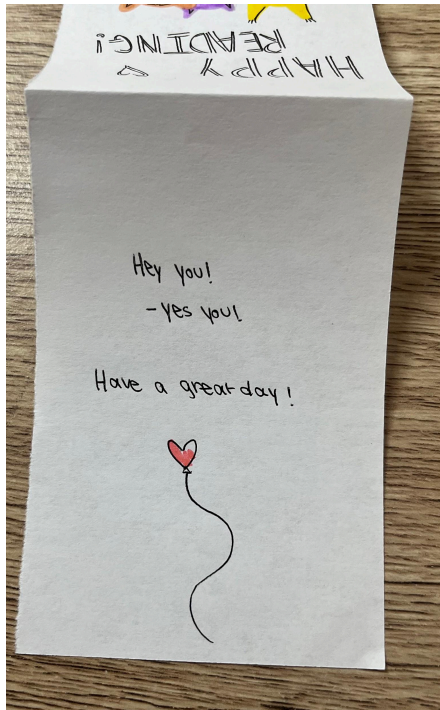 HAPPY
READING!
Hey you!
- yes you!
Have a great day!